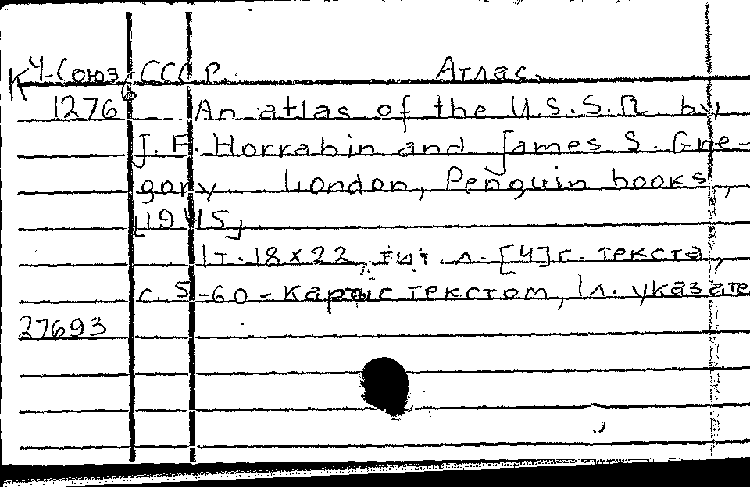 К 4-Союз ССР. Атлас.
1276 An atlas of the U.S.S.R by
J. F. Horrabin and James S. Gre-
gory London, Penguin books,
[1945]
1т. 18x22, тит. л. [4] с. текста,
с. 5-60 - карты с текстом, 1 л. указате
27693